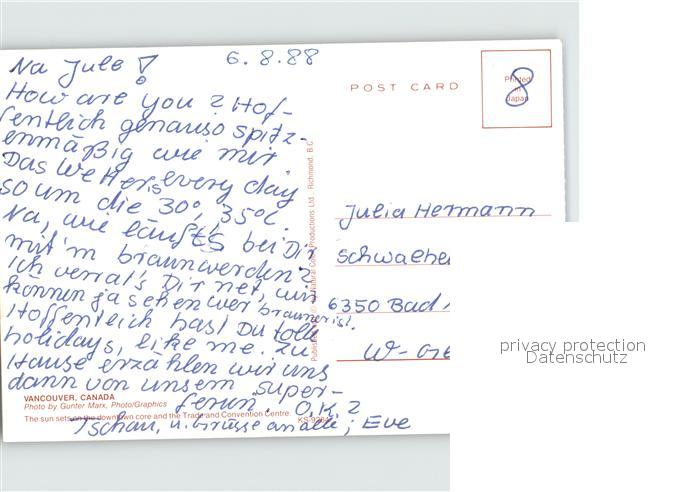 6.8.88
Na Jule!
How are you? Hof-
fentlich genauso spitz-
enmäßig wie mir
Das Wetter is every day
so um die 30°, 35°C.
Na, wie läuft's bei Dir
mit'm braunwerden?
Ich verrat's Dir net, wir
können ja sehen wer brauner ist.
Hoffentlich hast Du tolle
holidays, like me. Zu
Hause erzählen wir uns
dann von unsern super-
ferien. O.K.?
Tschau, u. Grüsse an alle; Eve
VANCOUVER, CANADA
Photo by Gunter Marx, Photo/Graphics
The sun sets on the downtown core and the Trade and Convention Centre.
Natural Color Productions Ltd., Richmond, B.C.
POST CARD
Printed
in
Japan
8
Julia Hermann
6350 Bad
privacy protection
Datenschutz